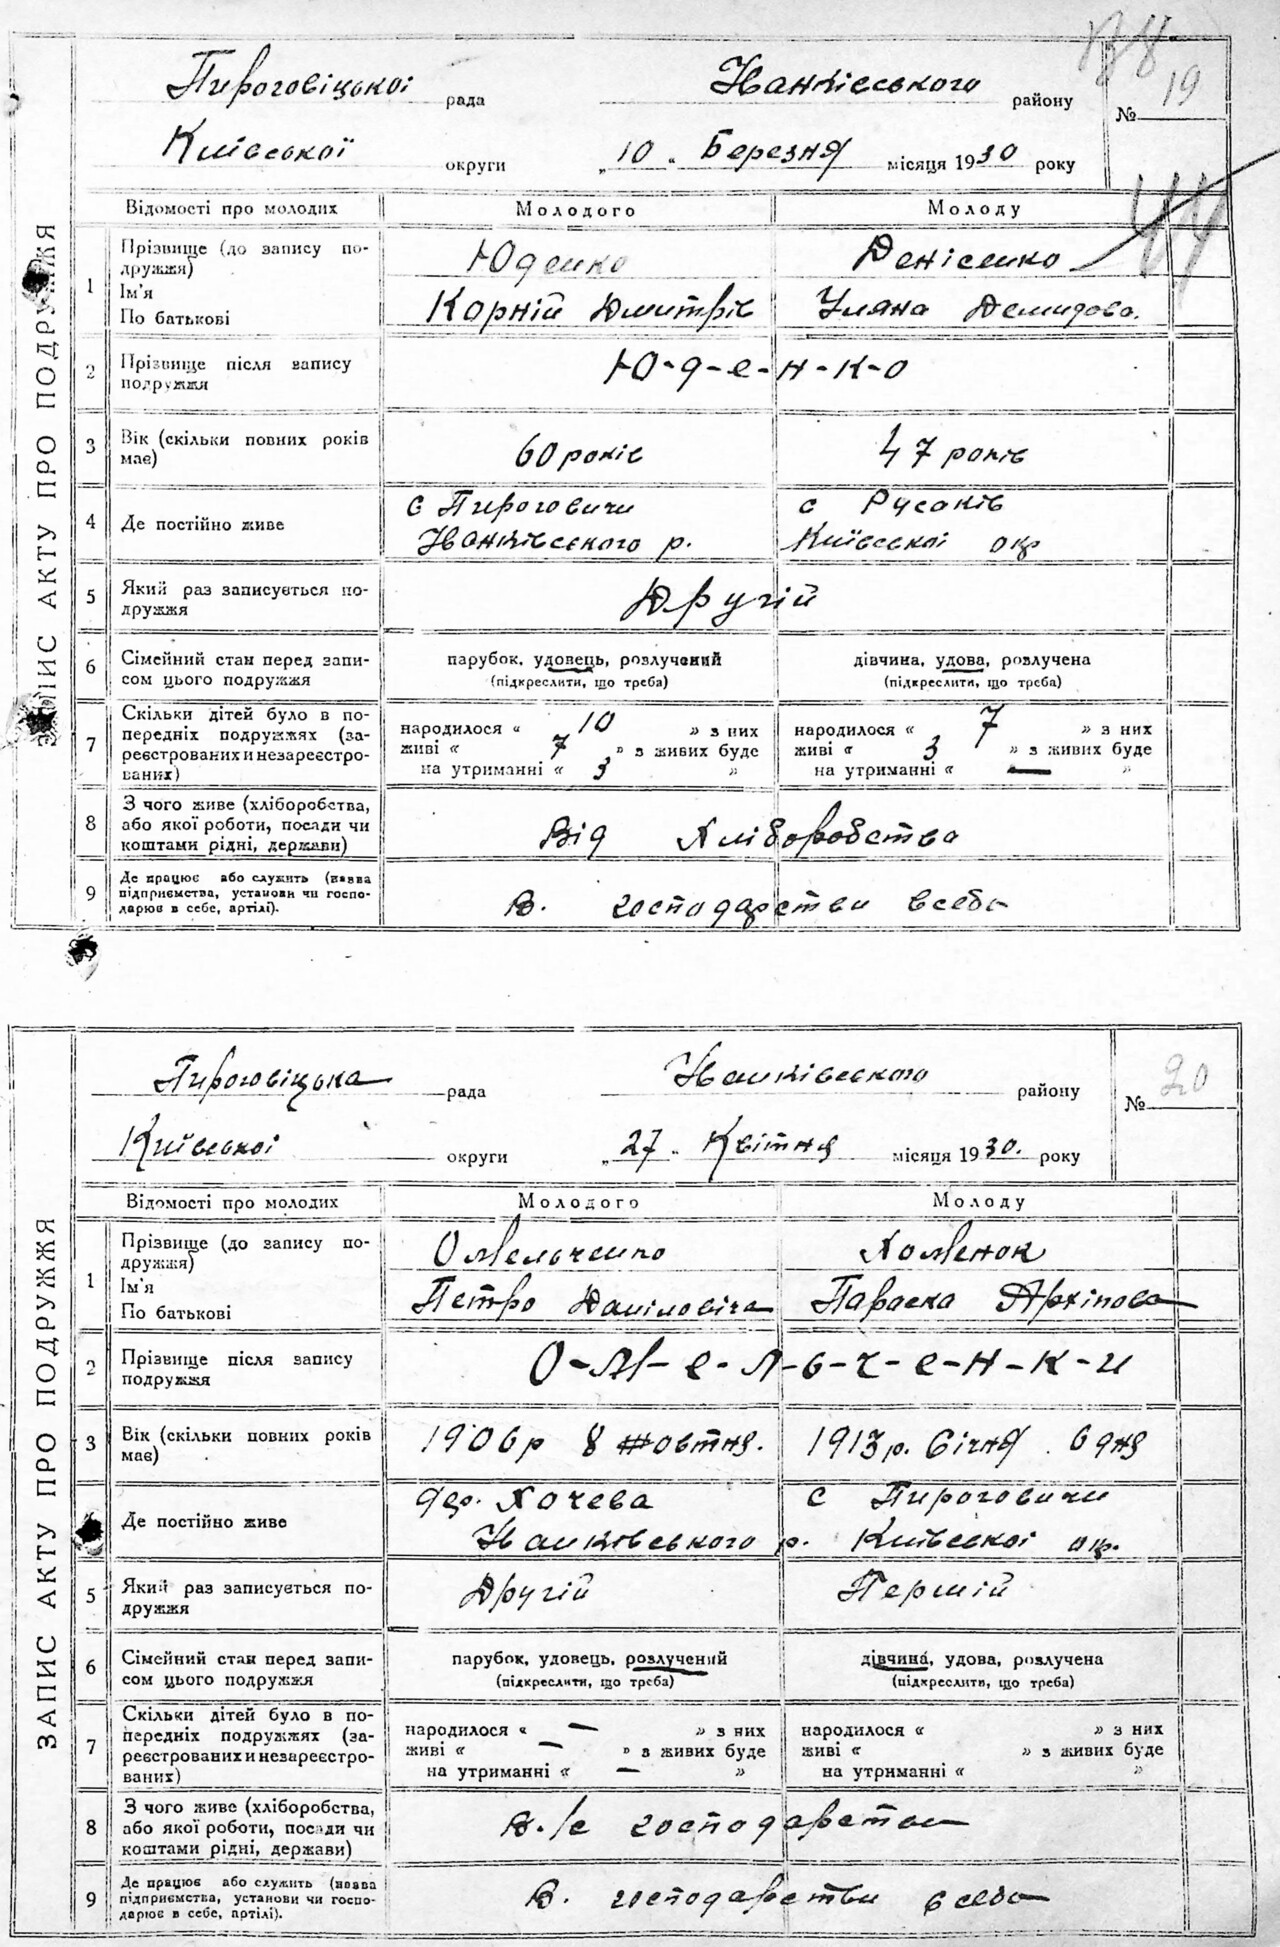 Пироговіцької рада Іванківського району № 19
Київської округи „10„ Березня місяця 1930 року
44
ЗАПИС АКТУ ПРО ПОДРУЖЖЯ
Відомості про молодих Молодого Молоду
1 Прізвище (до запису по-
дружжя) Юденко Денісенко
Ім'я
По батькові Корній Дмитрів Уляна Демидова.
2 Прізвище після запису
подружжя Ю-д-е-н-к-о
3 Вік (скільки повних років
має) 60 років 47 років
4 Де постійно живе с Пироговичи с Русаків
Іванківського р. Київської окр
5 Який раз записується по-
дружжя Другій
6 Сімейний стан перед запи-
сом цього подружжя парубок, удовець, розлучений дівчина, удова, розлучена
(підкреслити, що треба) (підкреслити, що треба)
7 Скільки дітей було в по-
передніх подружжях (за-
реєстрованих и незареєстро-
ваних) народилося « 10 » з них народилося « 7 » з них
живі « 7 » з живих буде живі « 3 » з живих буде
на утриманні « 3 » на утриманні « — »
8 З чого живе (хліборобства,
або якої роботи, посади чи
коштами рідні, держави) Від Хліборобства
9 Де працює або служить (назва
підприємства, установи чи госпо-
дарює в себе, артілі). В. господарстви всебе
Пироговіцька рада Іванківського району № 20
Київської округи „27„ Квітня місяця 1930. року
ЗАПИС АКТУ ПРО ПОДРУЖЖЯ
Відомості про молодих Молодого Молоду
1 Прізвище (до запису по-
дружжя) Омельченко Хоменок
Ім'я
По батькові Петро Даніловіча Параска Архіпова
2 Прізвище після запису
подружжя О-м-е-л-ь-ч-е-н-к-и
3 Вік (скільки повних років
має) 1906р 8 жовтня. 1913р. Січня 6 дня
4 Де постійно живе дер. Хочева с Пироговичи
Іванківського р. Київської окр.
5 Який раз записується по-
дружжя Другій Першій
6 Сімейний стан перед запи-
сом цього подружжя парубок, удовець, розлучений дівчина, удова, розлучена
(підкреслити, що треба) (підкреслити, що треба)
7 Скільки дітей було в по-
передніх подружжях (за-
реєстрованих и незареєстро-
ваних) народилося « — » з них народилося « » з них
живі « — » з живих буде живі « » з живих буде
на утриманні « — » на утриманні « »
8 З чого живе (хліборобства,
або якої роботи, посади чи
коштами рідні, держави) В. /с господарства
9 Де працює або служить (назва
підприємства, установи чи госпо-
дарює в себе, артілі). В. господарстви всебе